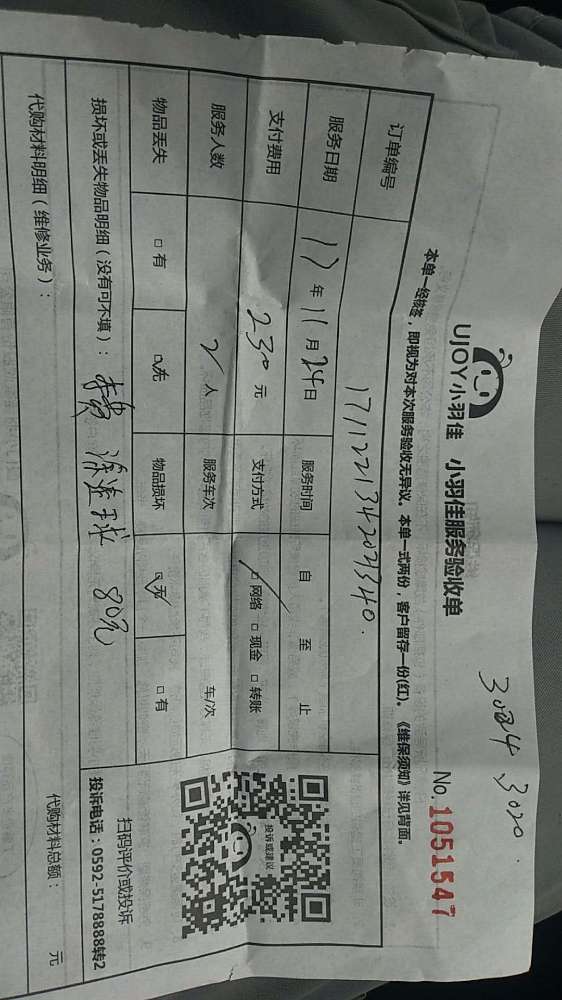 3084 3020.
UJOY小羽佳 小羽佳服务验收单
No. 1051547
本单一经签,即视为对本次服务验收无异议。本单一式两份,客户留存一份(红)。《维保须知》详见背面。
订单编号 1711221342021340.
服务日期 17年11月24日 服务时间 自 至 止
支付费用 230元 支付方式 □网络 □现金 □转账
服务人数 2人 服务车次 车/次
物品丢失 □有 □无 物品损坏 □无 □有
投诉或建议
扫码评价或投诉
投诉电话:0592-5178888转2
损坏或丢失物品明细(没有可不填): 80元
代购材料明细(维修业务):
代购材料总额: 元